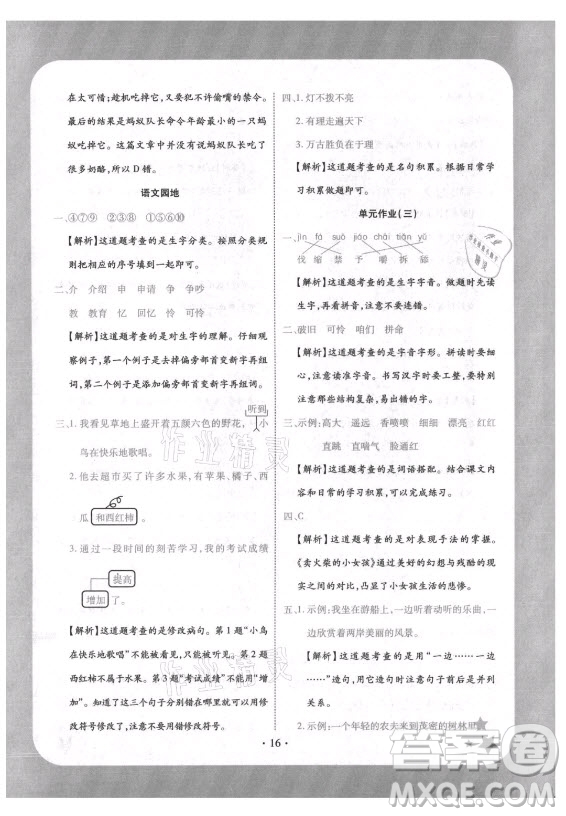 在太可惜;趁机吃掉它,又犯不许偷嘴的禁令。
最后的结果是蚂蚁队长命令年龄最小的一只蚂
蚁吃掉它。这篇文章中并没有说蚂蚁队长吃了
很多奶酪,所以 D 错。
语文园地
一、④⑦⑨ ②③⑧ ①⑤⑥⑩
【解析】这道题考查的是生字分类。仔细阅读生字,
按规则把相应的序号填到里面即可。
二、介 介绍 申 申请 争 争吵
教 教育 忆 回忆 怜 可怜
【解析】这道题考查的是对生字的理解。仔细观
察例子,第一个例子是去掉偏旁部首变新字再组
词,第二个例子是换偏旁部首变新字再组词。
听到
三、1. 我看见草地上盛开着五颜六色的野花,小
鸟在快乐地歌唱。
2. 他去超市买了许多水果,有苹果、橘子、西
瓜和西红柿。
3. 通过一段时间的刻苦学习,我的考试成绩
提高
增加了。
【解析】这道题考查的是修改病句。第 1 题“小鸟
在快乐地歌唱”不能被看见,只能被听见。第 2 题
西红柿不属于水果。第 3 题“考试成绩”不能用“增
加”。知道了这三个句子分别错在哪里就可以用
修改符号修改了,注意不要用错修改符号。
四、1. 灯不拨不亮
2. 有理走遍天下
3. 万古胜负在于理
【解析】这道题考查的是名句积累。根据平时学
习积累做题即可。
单元作业(三)
一、jìn fá suō jiáo chāi tiān yǔ
伐 缩 禁 予 嚼 拆 舔
【解析】这道题考查的是生字字音。做题时先读
生字,再看拼音,注意不要连错。
二、破旧 可怜 咱们 拼命
【解析】这道题考查的是字音字形。拼读时要仔
细,注意读出字音。书写汉字时要工整,要注意
不能有错别字。
三、示例:高大 遥远 香喷喷 细细 漂亮 红红
直跳 直喘气 脸通红
【解析】这道题考查的是词语搭配。根据平时的
学习积累做题即可。
四、C
【解析】这道题考查的是对表现手法的掌握。
《卖火柴的小女孩》通过美好的幻想与残酷的现
实之间的对比,体现出小女孩的悲惨。
五、1. 示例:我坐在游船上,一边听着动听的歌曲,
一边欣赏着两岸美丽的风景。
【解析】这道题考查的是用“一边……一边……
”造句,用它造句时要注意两个动作之间的
关系。
2. 示例:一个年轻的农夫来到茂密的树林里
· 16 ·
作业精灵
作业精灵
答案圈
MXQE.COM